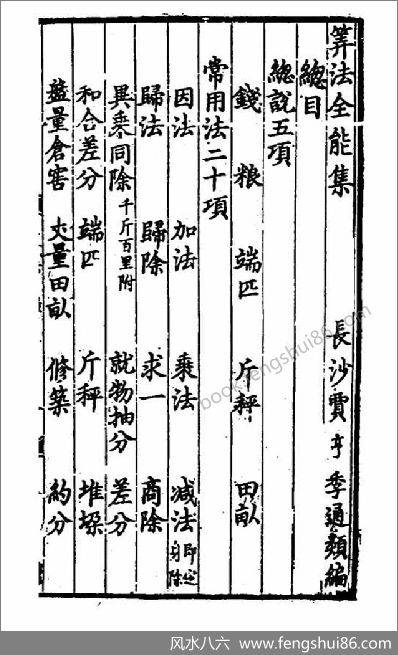 筭法全能集 長沙賈亨季通類編
總目
總說五項
錢粮 端匹 斤秤 田畝
常用法二十項
因法 加法 乘法 減法即定身除
歸法 歸除 求一 商除
異乘同除千斤百里附 就物抽分 差分
和合差分 端匹 斤秤 堆垜
盤量倉窖 丈量田畝 修築 約分
book.fengshui86.com
风水八六 www.fengshui86.com